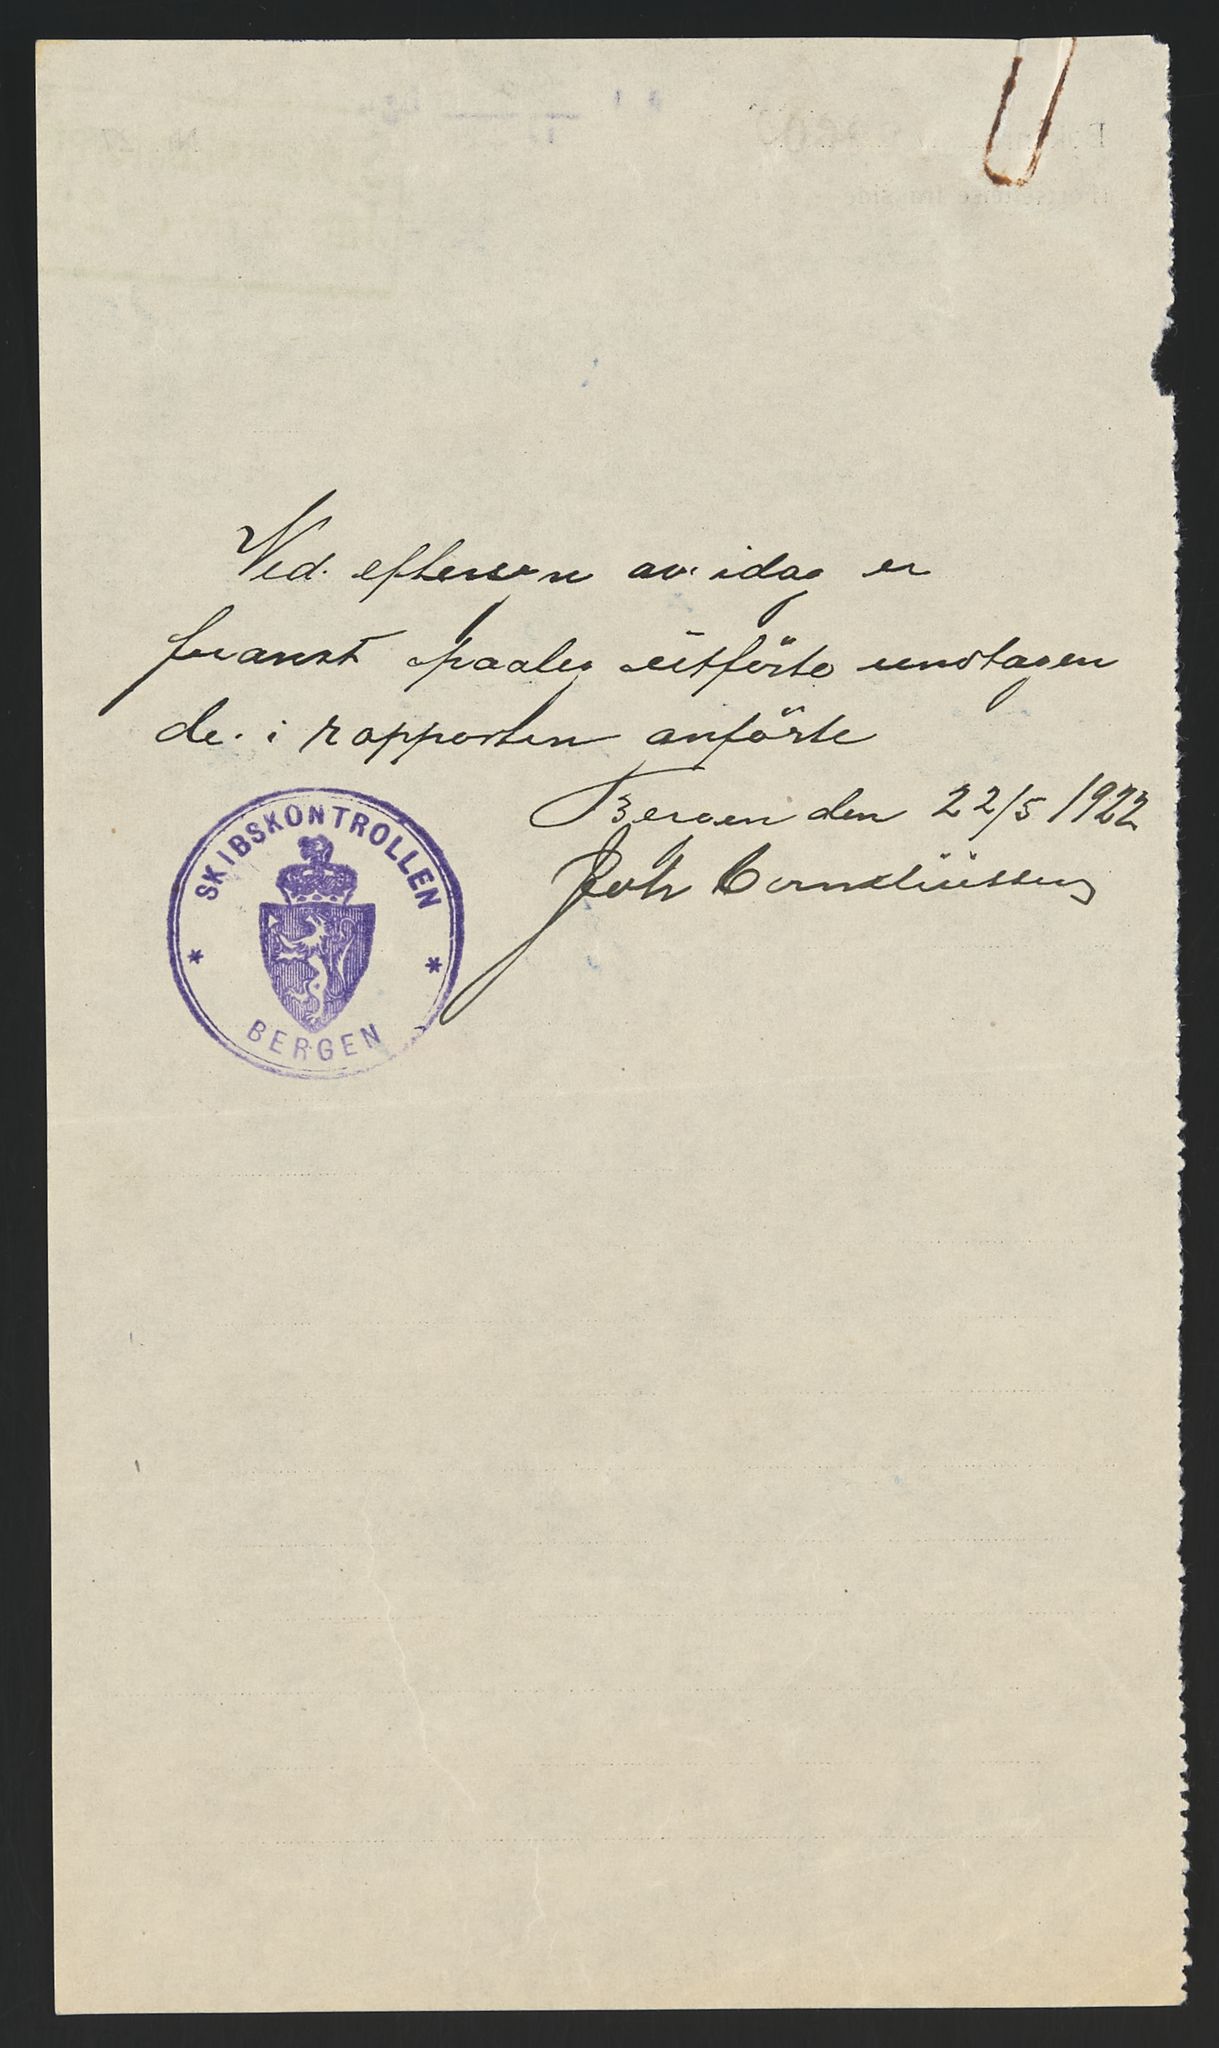 Ved eftersyn av idag er
franst paaleg utförte undtagen
de i rapporten anförte
Bergen den 22/5 1922
Joh Corneliüssen
SKIBSKONTROLLEN
* *
BERGEN